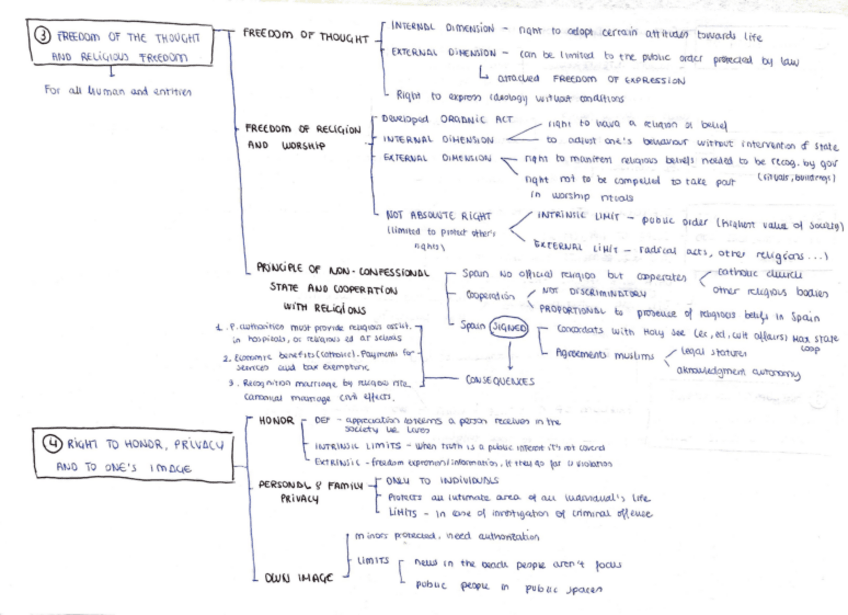 ③ FREEDOM OF THE THOUGHT
AND RELIGIOUS FREEDOM
For all human and entities
FREEDOM OF THOUGHT
INTERNAL DIMENSION - right to adopt certain attitudes towards life
EXTERNAL DIMENSION - can be limited to the public order protected by law
attached FREEDOM OF EXPRESSION
Right to express ideology without conditions
FREEDOM OF RELIGION
AND WORSHIP
Developed ORGANIC ACT
INTERNAL DIMENSION
right to have a religion or belief
to adjust one's behaviour without intervention of state
EXTERNAL DIMENSION
right to manifest religious beliefs needed to be recog. by gov
(rituals, buildings)
right not to be compelled to take part
in worship rituals
NOT ABSOLUTE RIGHT
(limited to protect other's
rights)
INTRINSIC LIMIT - public order (highest value of society)
EXTERNAL LIMIT - radical acts, other religions...)
PRINCIPLE OF NON-CONFESSIONAL
STATE AND COOPERATION
WITH RELIGIONS
Spain no official religion but cooperates
catholic church
other religious bodies
Cooperation
NOT DISCRIMINATORY
PROPORTIONAL to presence of religious beliefs in Spain
Spain SIGNED
Concordats with Holy See (ec, ed, cult affairs) Max state
coop
Agreements muslims
legal statutes
aknowledgment autonomy
CONSEQUENCES
1. P. authorities must provide religious assist.
in hospitals, or religious ed at schools
2. Economic benefits (catholic). Payments for
services and tax exemptions
3. Recognition marriage by religious rite
canonical marriage civil effects.
④ RIGHT TO HONOR, PRIVACY
AND TO ONE'S IMAGE
HONOR
DEF - appreciation esteems a person receives in the
society he lives
INTRINSIC LIMITS - when truth is a public interest it's not covered
EXTRINSIC - freedom expression/information, if they go far violation
PERSONAL & FAMILY
PRIVACY
ONLY TO INDIVIDUALS
Protects an intimate area of an individual's life
LIMITS - in case of investigation of criminal offense
OWN IMAGE
minors protected, need authorization
LIMITS
news in the beach people aren't focus
public people in public spaces